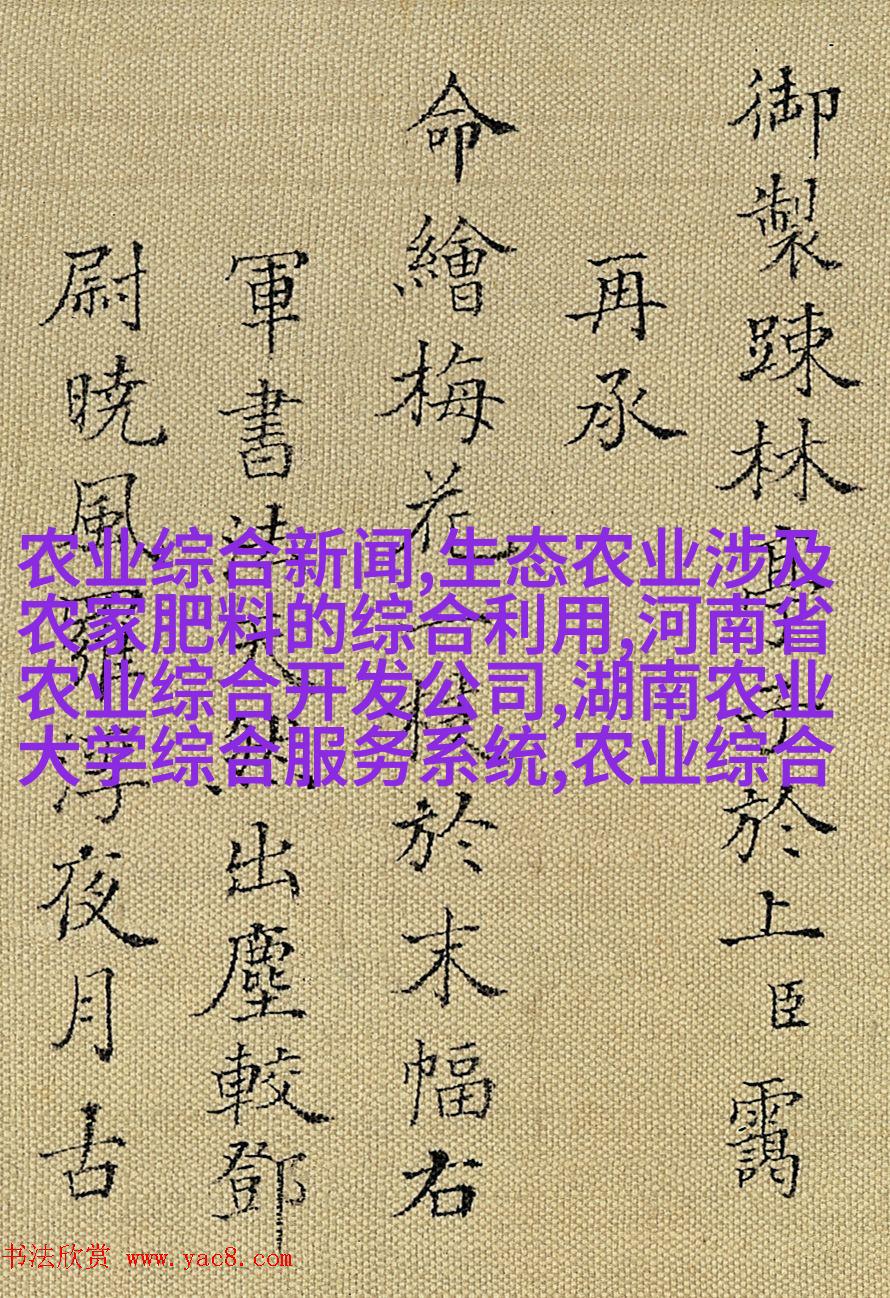 御製踈林於上臣靄
再承
命繪梅花於末幅右
軍書法出塵較鄧
尉暁風浮夜月古
农业综合新闻,生态农业涉及
农家肥料的综合利用,河南省
农业综合开发公司,湖南农业
大学综合服务系统,农业综合
书法欣赏 www.yac8.com